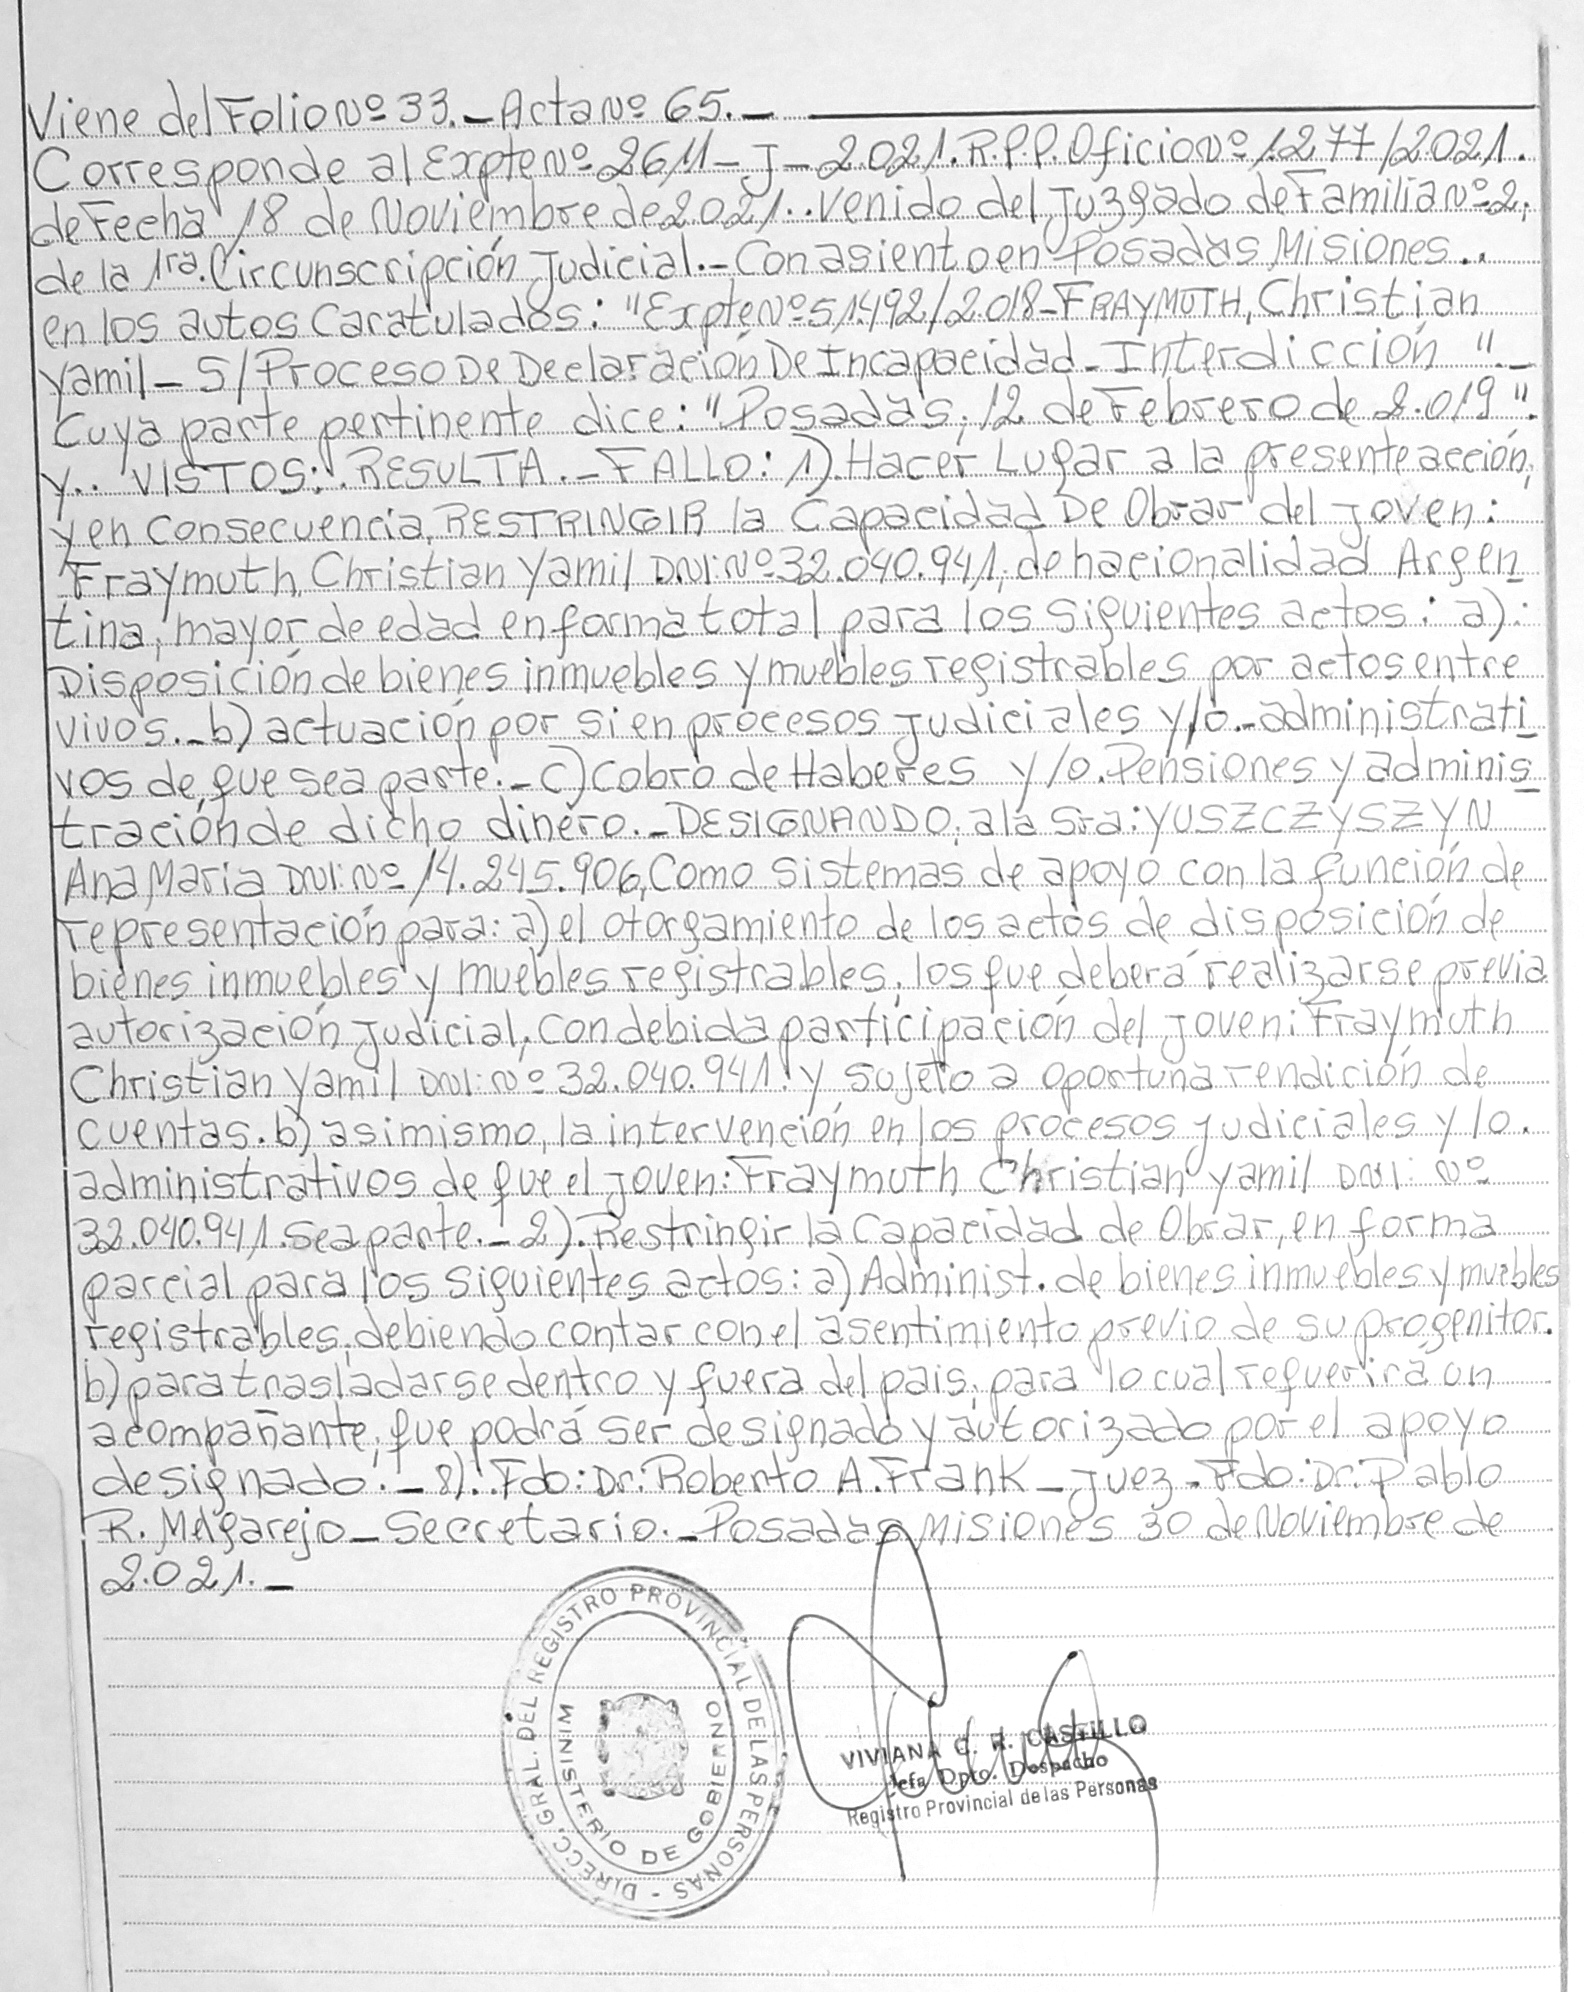 Viene del Folio Nº 33.- Acta Nº 65.-
Corresponde al Expte Nº 2611-J-2.021. R.P.P. Oficio Nº 1.277/2021.
de Fecha 18 de Noviembre de 2021.. Venido del Juzgado de Familia Nº 2,
de la 1ra. Circunscripción Judicial.- Con asiento en Posadas Misiones..
en los autos Caratulados: "Expte Nº 51492/2.018-FRAYMUTH, Christian
Yamil- S/PROCESO De Declaración De Incapacidad- Interdicción".-
Cuya parte pertinente dice: "Posadas, 12 de Febrero de 2.019".
Y.. VISTOS: RESULTA.- FALLO: 1) Hacer Lugar a la presente acción,
y en consecuencia, RESTRINGIR la Capacidad De Obrar del Joven:
Fraymuth, Christian Yamil DNI: Nº 32.040.941, de nacionalidad Argen
tina, mayor de edad en forma total para los siguientes actos: a):
Disposición de bienes inmuebles y muebles registrables por actos entre
vivos.- b) actuación por si en procesos Judiciales y/o.- administrati
vos de que sea parte.- C) Cobro de Haberes y/o. Pensiones y adminis
tración de dicho dinero.- DESIGNANDO, a la Sra: YUSZCZYSZYN
Ana Maria DNI: Nº 14.245.906, Como sistemas de apoyo con la función de
representación para: a) el otorgamiento de los actos de disposición de
bienes inmuebles y muebles registrables, los que deberá realizarse previa
autorización Judicial, con debida participación del Joven: Fraymuth
Christian Yamil DNI: Nº 32.040.941. y sujeto a oportuna rendición de
cuentas. b) asimismo, la intervención en los procesos Judiciales y/o.
administrativos de que el Joven: Fraymuth Christian Yamil DNI: Nº
32.040.941. sea parte.- 2). Restringir la Capacidad de Obrar, en forma
parcial para los siguientes actos: a) Administ. de bienes inmuebles y muebles
registrables, debiendo contar con el asentimiento previo de su progenitor.
b) para trasladarse dentro y fuera del pais, para lo cual requerirá un
acompañante, que podrá ser designado y autorizado por el apoyo
designado.- 8). Fdo: Dr. Roberto A. Frank- Juez- Fdo: Dr. Pablo
R. Melgarejo- Secretario.- Posadas Misiones 30 de Noviembre de
2.021.-
DIRECC. GRAL. DEL REGISTRO PROVINCIAL DE LAS PERSONAS -
MINISTERIO DE GOBIERNO
VIVIANA C. R. CASTILLO
Jefa Dpto. Despacho
Registro Provincial de las Personas